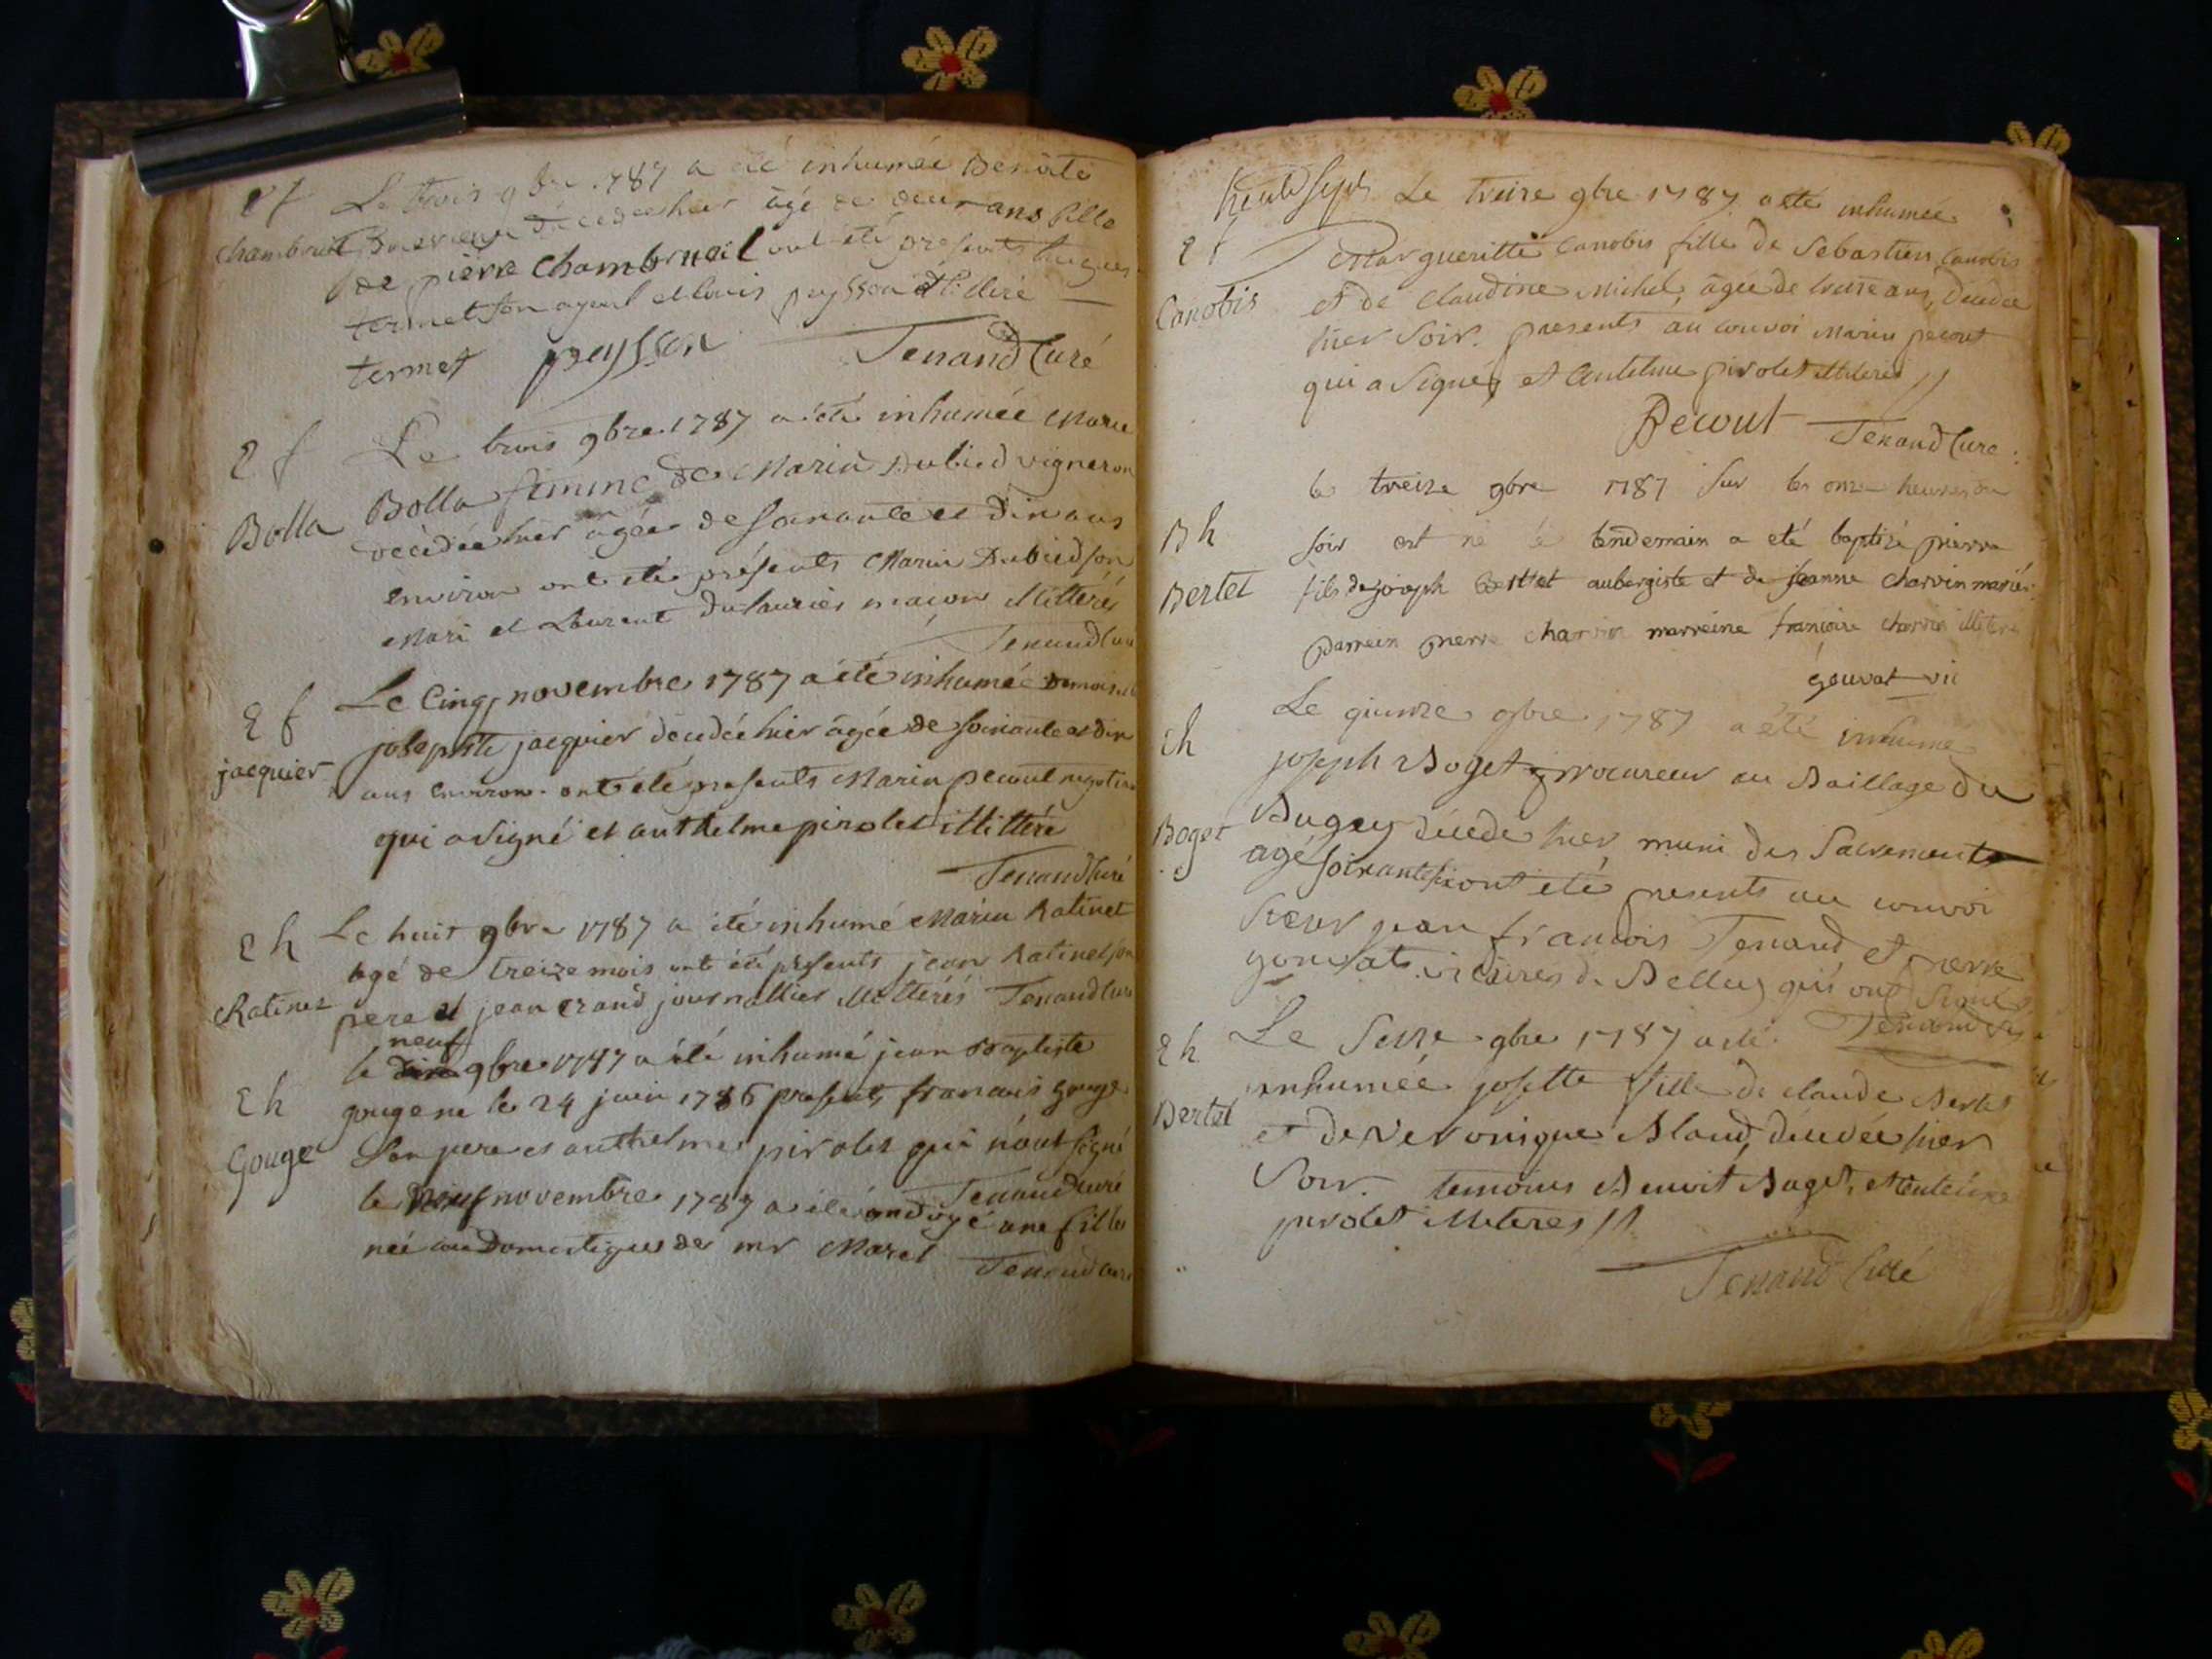 E f
chambrueil
Le trois 9bre 1787 a été inhumée Benoite
décédée hier âgé de deux ans fille
de pierre chambrueil ont été presents hugues
termet son ayeul et louis peysson illitéré
termet peysson Tenand Curé
E f
Bolla
Le trois 9bre 1787 a été inhumée Marie
Bolla femme de Marin Dubied vigneron
décédée hier agée de soixante et dix ans
environ ont été présents Marin Dubied son
Mari et Laurent maçon illitterés
Tenand Curé
E f
jacquier
Le Cinq novembre 1787 a été inhumée Demoiselle
josephte jacquier décédée hier âgée de soixante et dix
ans environ ont été presents Marin Pecout negotiant
qui a signé et anthelme pirolet illittéré
Tenand Curé
E h
Ratinet
Le huit 9bre 1787 a été inhumé Marin Ratinet
agé de treize mois ont été presents jean Ratinet son
pere et jean crand journallier illitterés Tenand Curé
E h
Gouge
neuf
le 9bre 1787 a été inhumé jean Baptiste
gouge né le 24 juin 1786 presents francois gouge
Son pere et anthelme pirolet qui n'ont signé
Tenand Curé
le neuf novembre 1787 a été ondoyé une fille
née au domestique de mr Marel Tenand Curé
trente sept
E f
Canobis
Le treize 9bre 1787 a été inhumée
Margueritte Canobis fille de Sebastien Canobis
et de Claudine Michel, âgée de treize ans, décédée
hier soir. presents au convoi Marin pecout
qui a signé, et Antelme pirolet illiteré //
Pecout Tenand Curé
B h
Bertet
le treize 9bre 1787 sur les onze heures du
soir est né le lendemain a eté baptisé pierre
fils de joseph Bertet aubergiste et de jeanne charvin mariés
parrein pierre charvin marreine françoise charvin illiteres
gouvat vic
E h
Boget
Le quinze 9bre 1787 a été inhumé
joseph Boget procureur au Baillage du
Bugey décédé hier muni des Sacrements
agé soixante six ont été presents au convoi
Sieur jean francois Tenand et pierre
gouvat vicaires de Belley qui ont signés
Tenand
E h
Bertet
Le Seize 9bre 1787 a été
inhumée josette fille de claude Bertet
et de Veronique Bland, décédée hier
Soir. temoins Benoit Buget, et Antelme
pirolet illiteres //
Tenand Curé